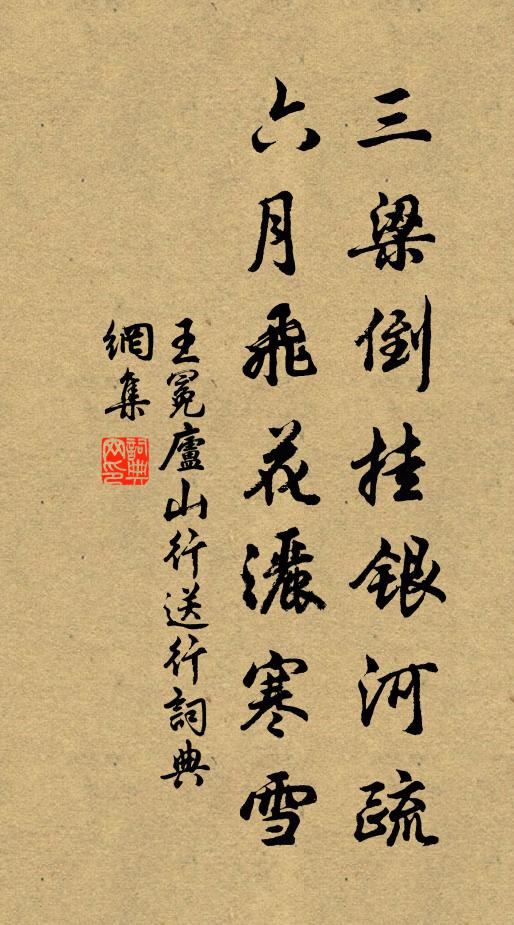 三梁倒挂銀河疏
六月飛花灑寒雪
王冕廬山行送行詞典
網集
詞典
网印